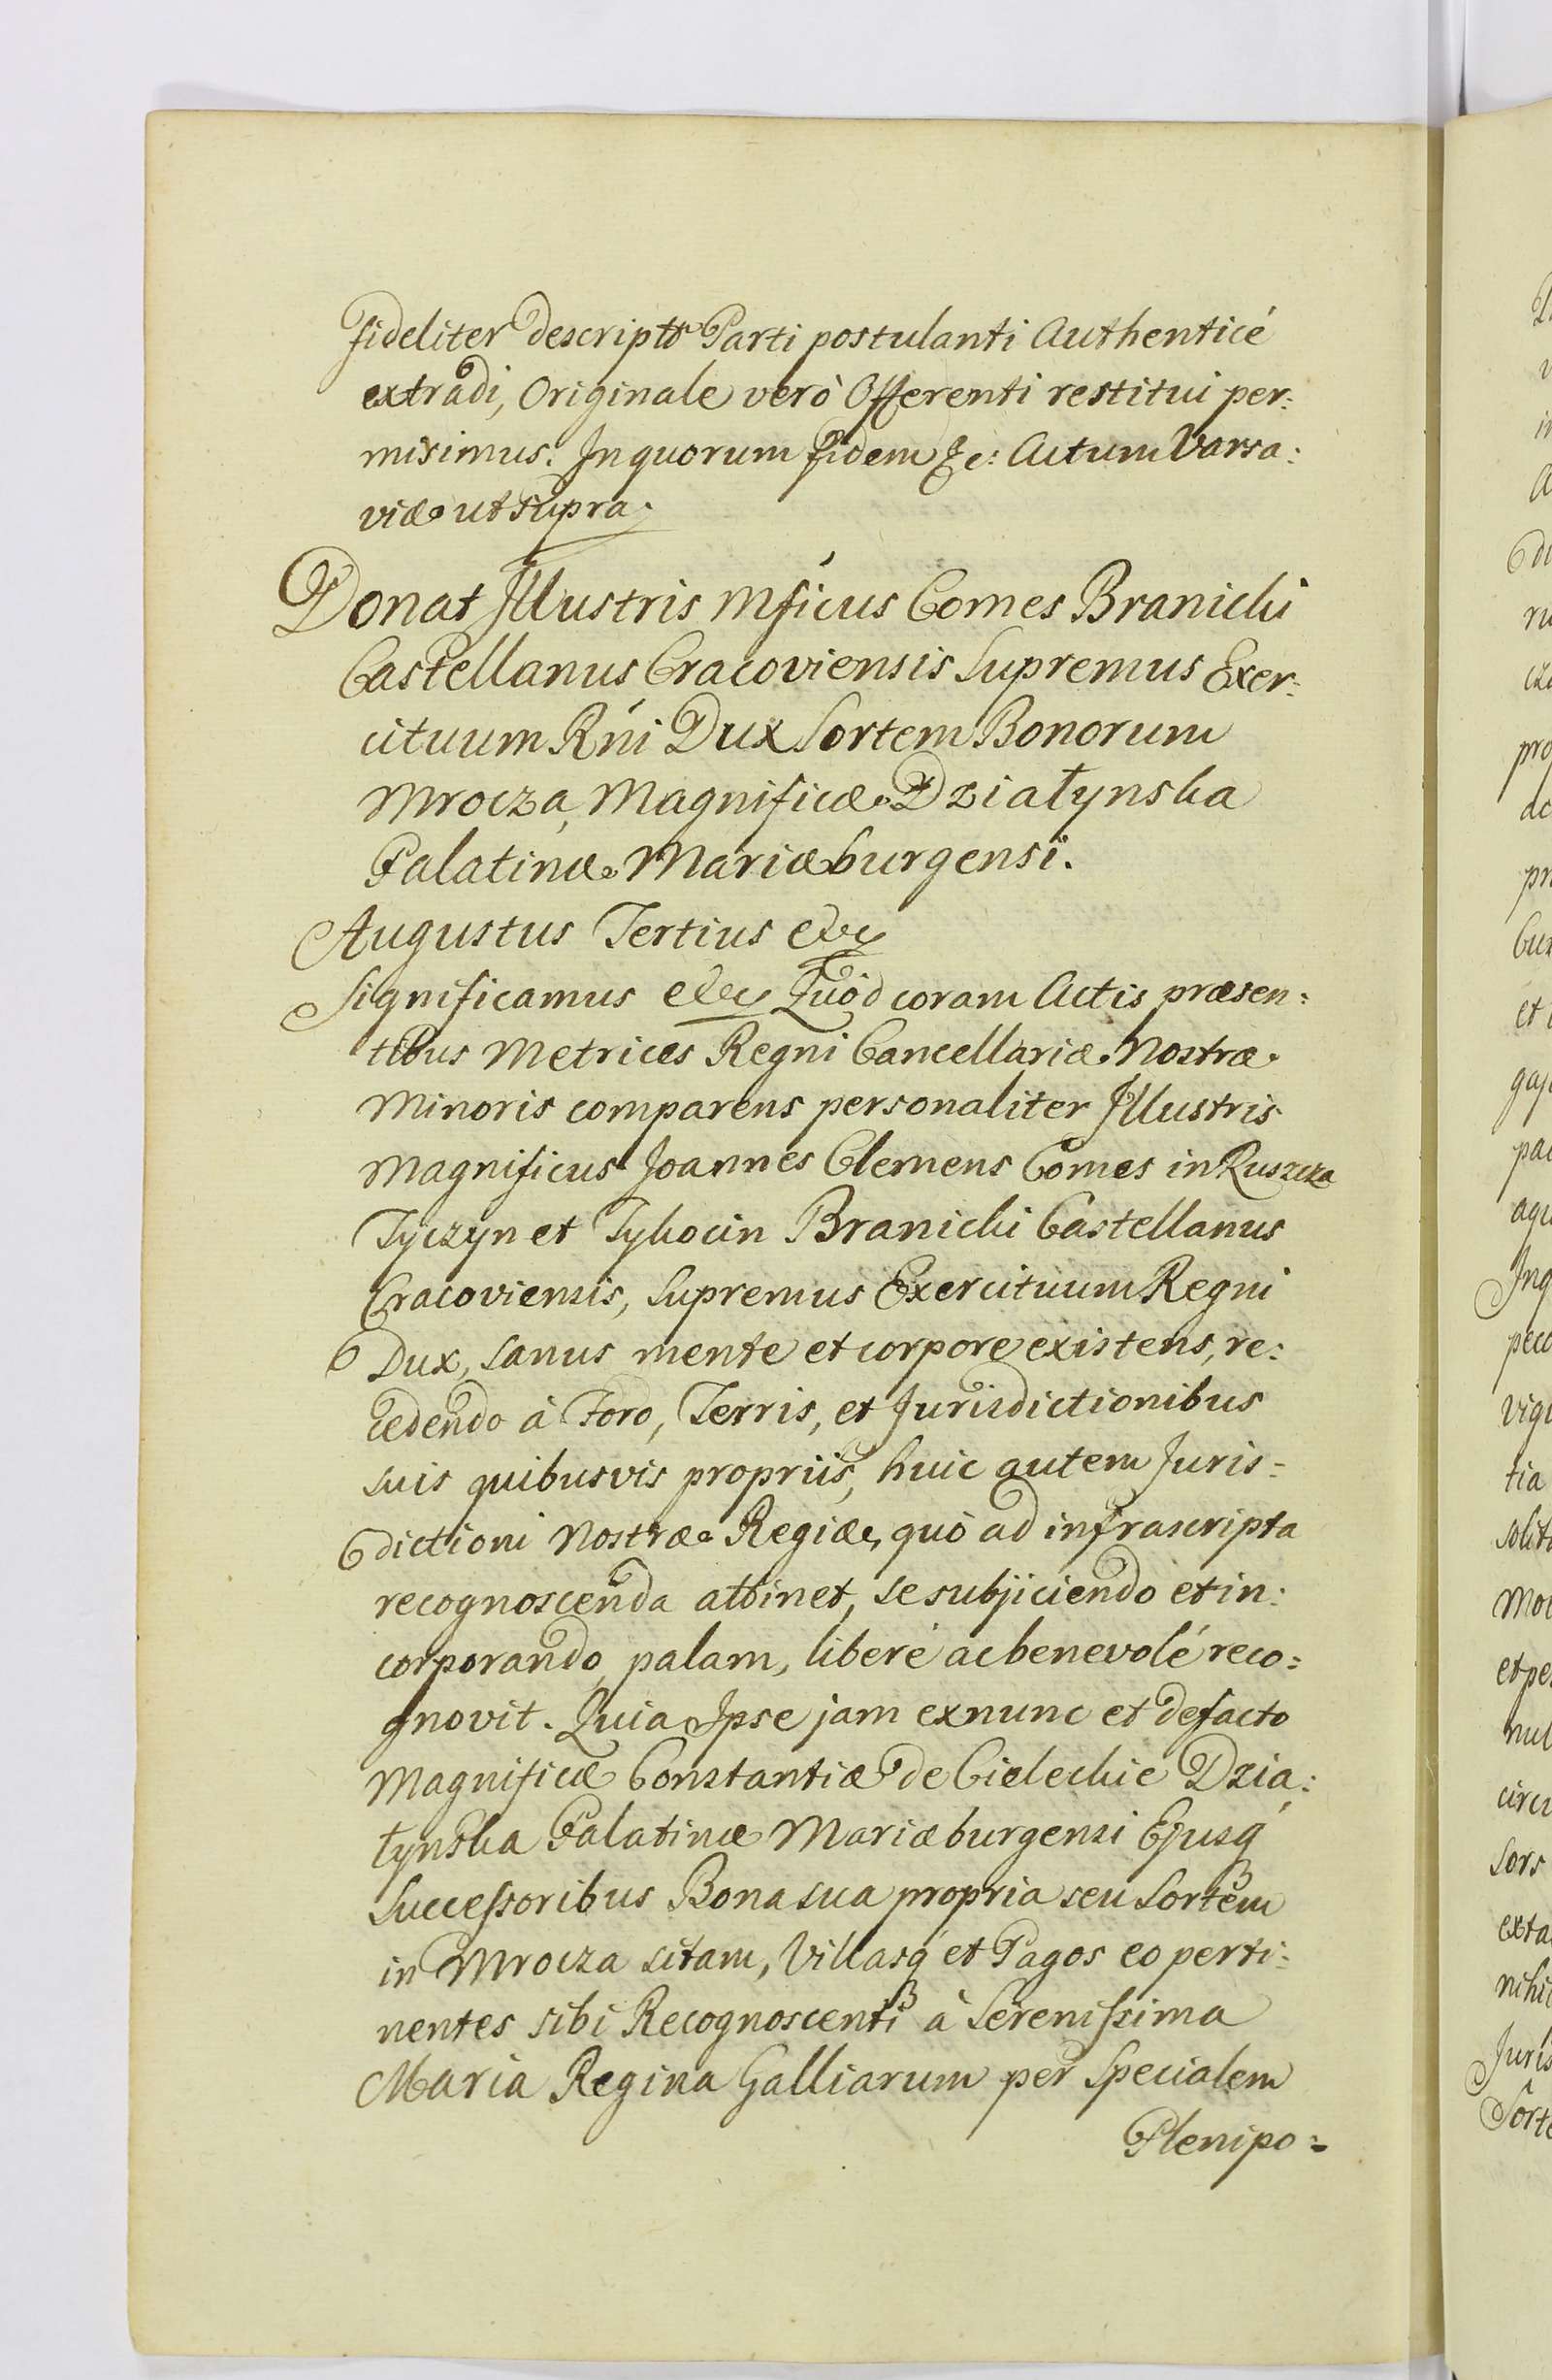 fideliter descripto Parti postulanti Authenticé
extradi, Originale verò Offerenti restitui per:
misimus. In quorum fidem &c: Actum Varsa:
viæ ut supra.
Donat Illustris Mficus Comes Branicki
Castellanus Cracoviensis Supremus Exer:
cituum Rni Dux Sortem Bonorum
Mrocza, Magnificæ Dziatynska
Palatinæ Mariæburgensi.
Augustus Tertius &c
Significamus &c Quòd coram Actis præsen:
tibus Metrices Regni Cancellariæ Nostræ
Minoris comparens personaliter Illustris
Magnificus Joannes Clemens Comes in Ruszcza
Tyczyn et Tykocin Branicki Castellanus
Cracoviensis, Supremus Exercituum Regni
Dux, sanus mente et corpore existens, re:
cedendo à Foro, Terris, et Jurisdictionibus
suis quibusvis propriis, huic autem Juris=
dictioni Nostræ Regiæ, quò ad infrascripta
recognoscenda attinet, se subjiciendo et in:
corporando, palam, liberé ac benevolé reco:
gnovit. Quia Ipse jam ex nunc et de facto
Magnificæ Constantiæ de Cieleckie Dzia:
tynska Palatinæ Mariæburgensi Ejusq́
Successoribus Bona sua propria seu Sortem
in Mrocza sitam, Villasq́ et Pagos eo perti:
nentes sibi Recognoscenti à Serenissima
Maria Regina Galliarum per Specialem
Plenipo: